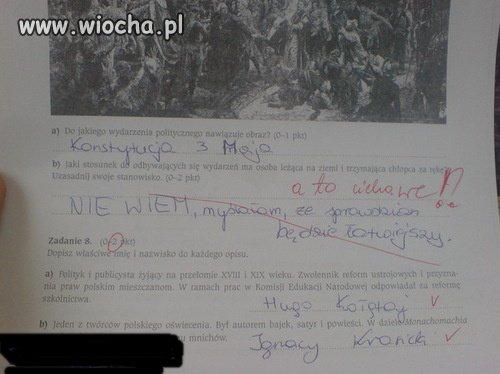 www.wiocha.pl
a) Do jakiego wydarzenia politycznego nawiązuje obraz? (0–1 pkt)
Konstytucja 3 Maja
b) Jaki stosunek do odbywających się wydarzeń ma osoba leżąca na ziemi i trzymająca chłopca za rękę?
Uzasadnij swoje stanowisko. (0–2 pkt)
a to ciekawe
NIE WIEM, myślałam, że sprawdzian
będzie łatwiejszy.
Zadanie 8. (0–2 pkt)
Dopisz właściwe imię i nazwisko do każdego opisu.
a) Polityk i publicysta żyjący na przełomie XVIII i XIX wieku. Zwolennik reform ustrojowych i przyzna-
nia praw polskim mieszczanom. W ramach prac w Komisji Edukacji Narodowej odpowiadał za reformę
szkolnictwa.
Hugo Kołątaj
b) Jeden z twórców polskiego oświecenia. Był autorem bajek, satyr i powieści. W dziele Monachomachia
mnichów.
Ignacy Krasicki